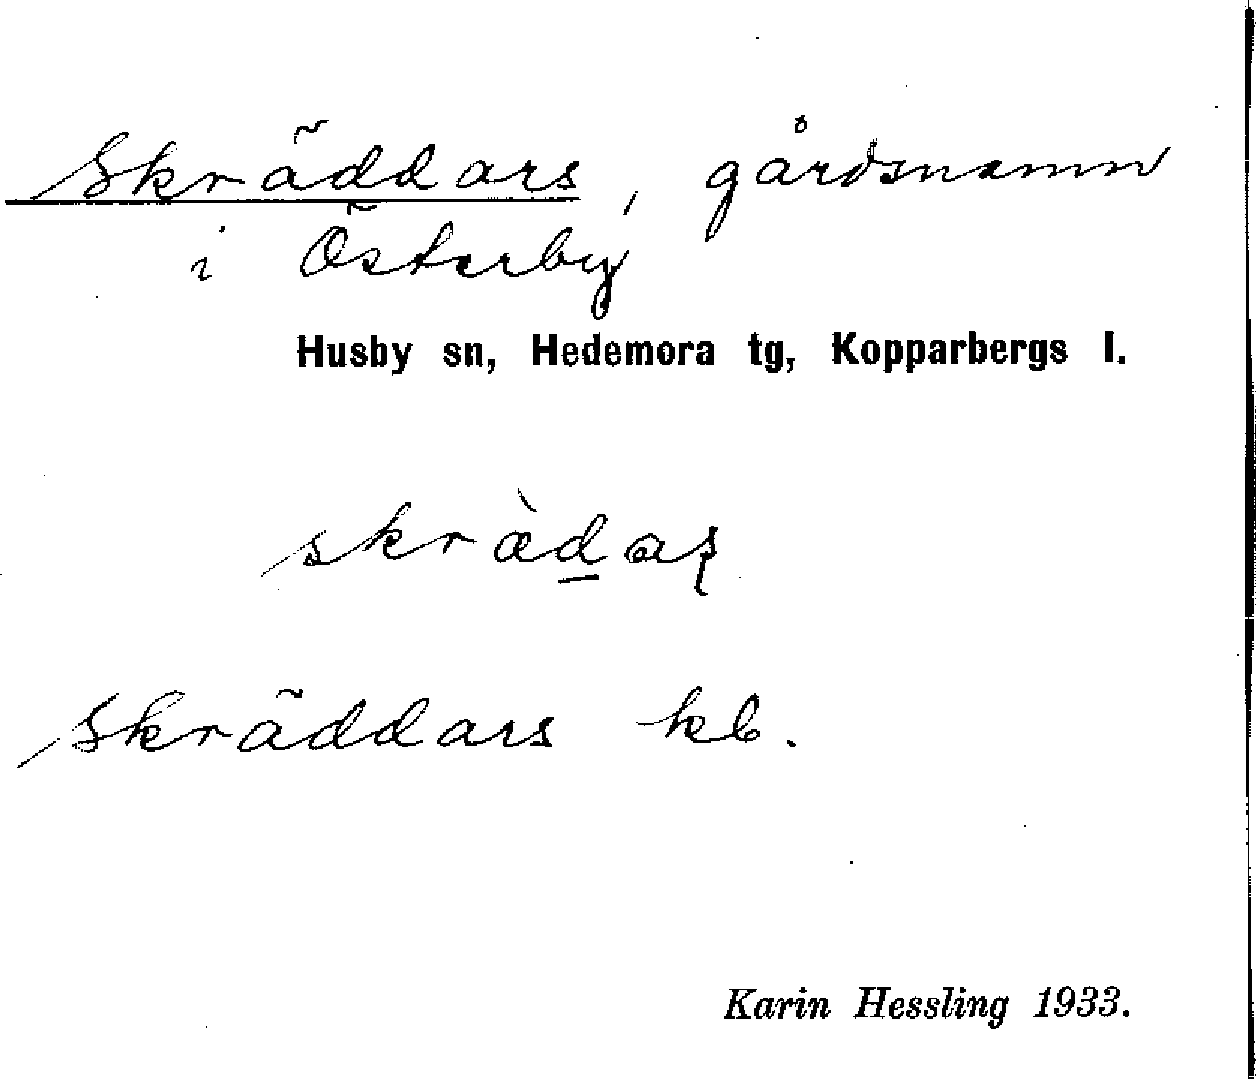 Skräddars, gårdsnamn
i Österby
Husby sn, Hedemora tg, Kopparbergs l.
skræ̀d̲aʂ
Skräddars kb.
Karin Hessling 1933.